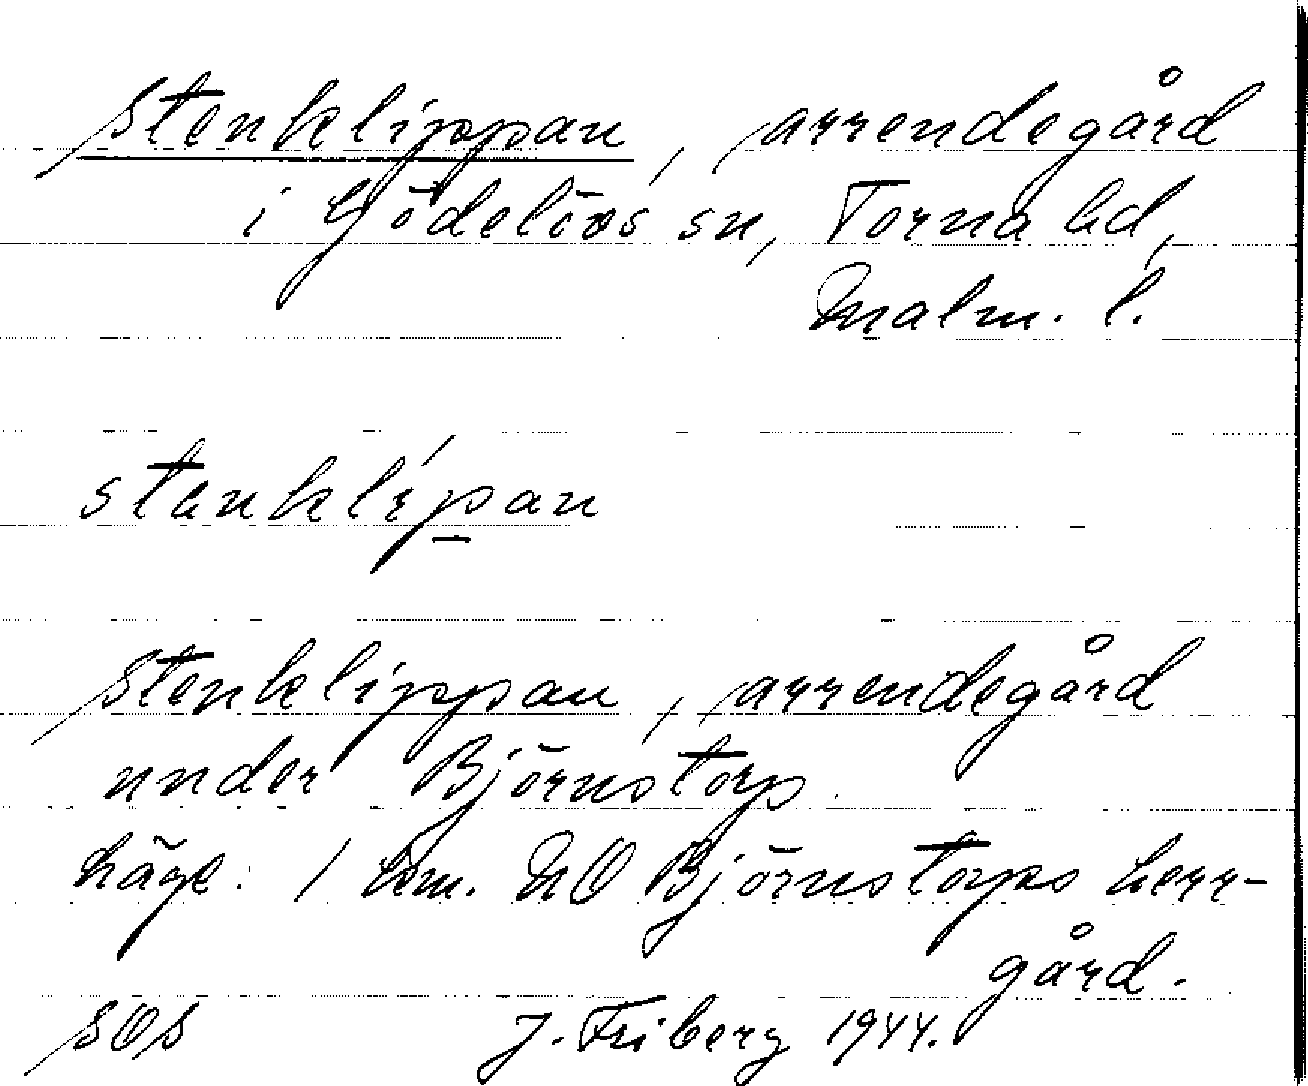 Stenklippan, arrendegård
i Gödelövs sn, Torna hd,
Malm. l.
stenklípan
Stenklippan, arrendegård
under Björnstorp.
Läge: 1 km. NO Björnstorps herr-
gård.
SOS J. Friberg 1944.